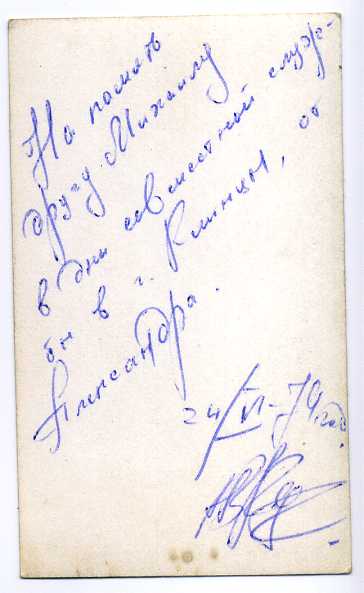 На память
другу Михаилу
в дни совместной служ-
бы в г. Клинцы, от
Александра.
24/VI-79 год.